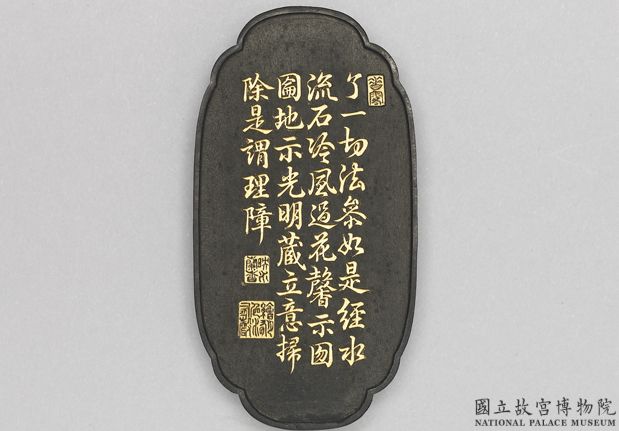 了一切法參如是經水
流石冷風過花馨示囫
圇地示光明藏立意掃
除是謂理障
國立故宮博物院
NATIONAL PALACE MUSEUM